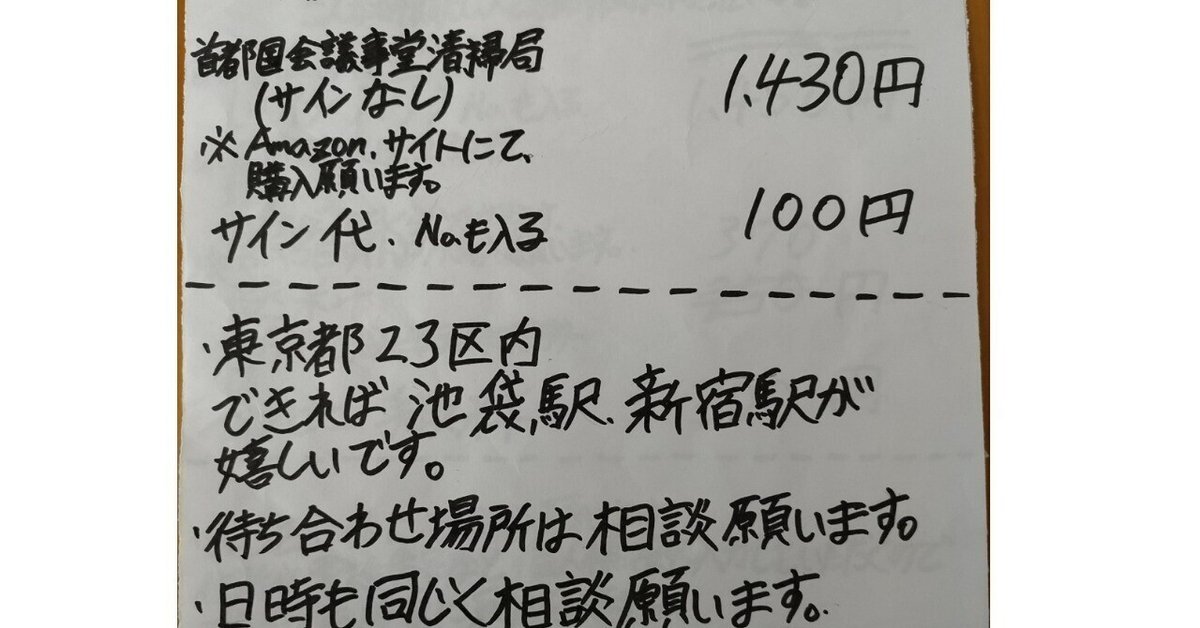 首都国会議事堂清掃局 1,430円
(サインなし)
※Amazon.サイトにて、
購入願います。
サイン代、No.も入る 100円
・東京都23区内
できれば池袋駅、新宿駅が
嬉しいです。
・待ち合わせ場所は相談願います。
・日時も同じく相談願います。